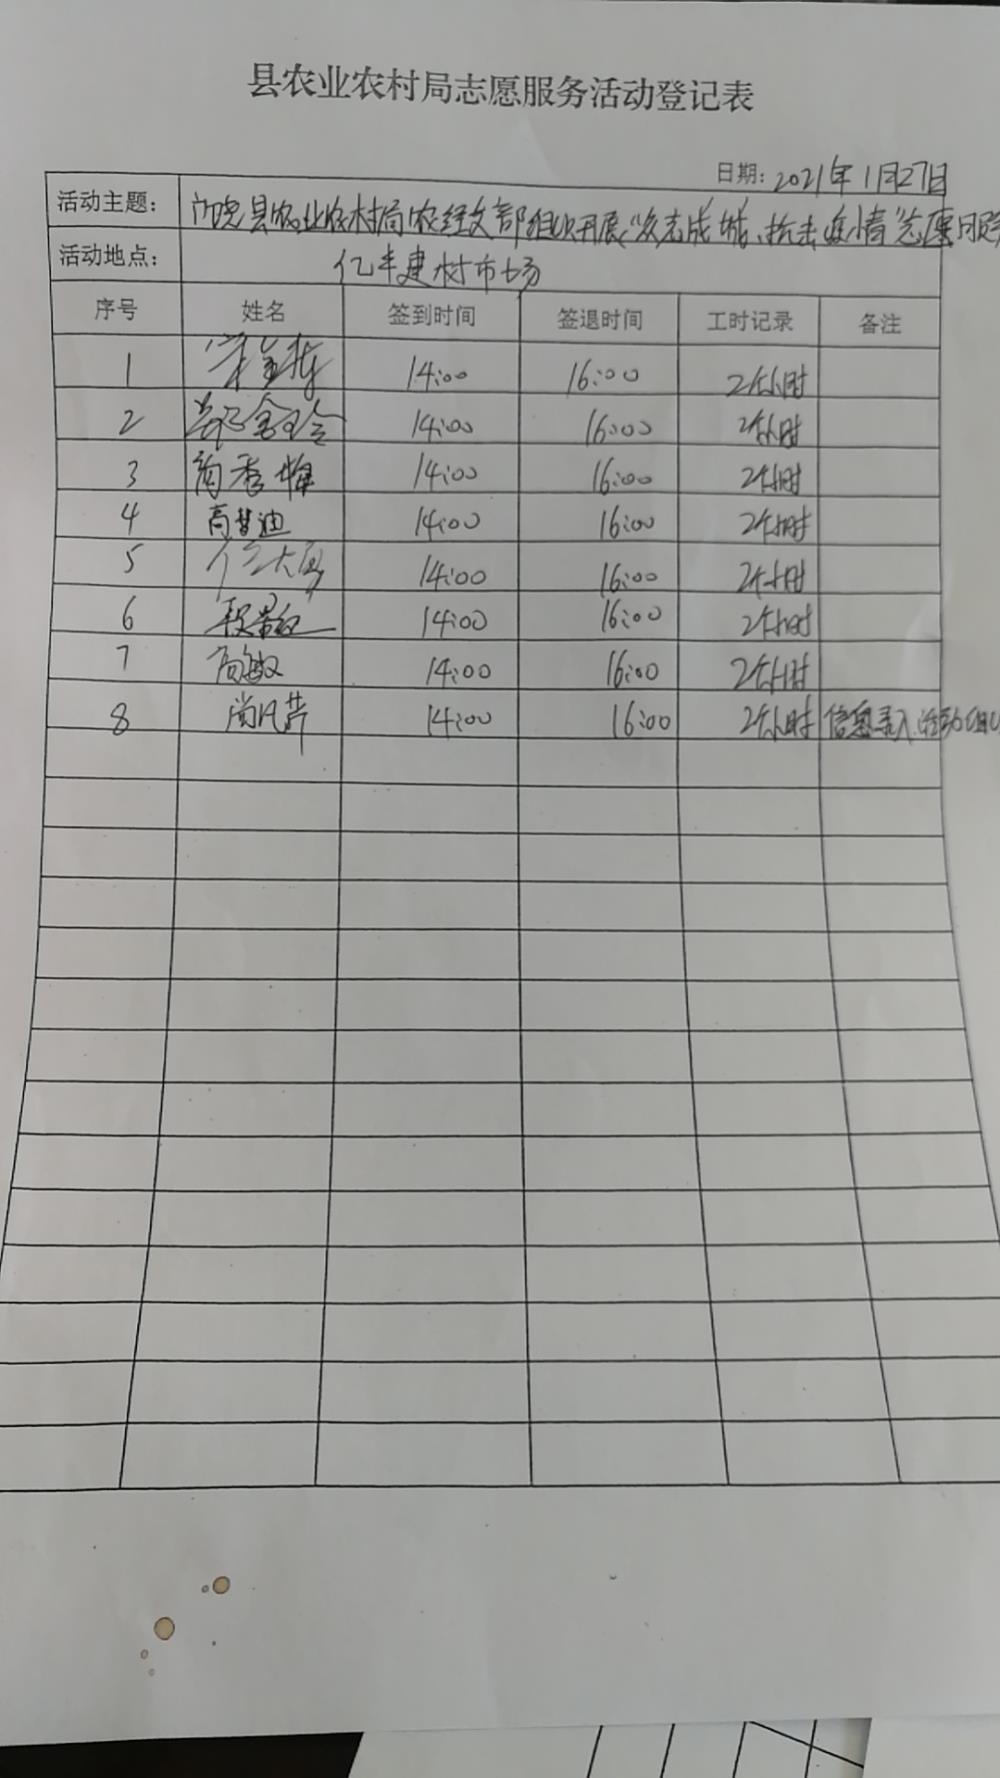 县农业农村局志愿服务活动登记表
日期：2021年1月27日
活动主题： 县农业农村局农经支部组织开展“众志成城、抗击疫情”志愿服务
活动地点： 亿丰建材市场
序号 姓名 签到时间 签退时间 工时记录 备注
1 14:00 16:00 2个小时
2 14:00 16:00 2个小时
3 14:00 16:00 2个小时
4 高梦迪 14:00 16:00 2个小时
5 14:00 16:00 2个小时
6 14:00 16:00 2个小时
7 高敏 14:00 16:00 2个小时
8 尚凤芹 14:00 16:00 2个小时 信息录入、活动组织